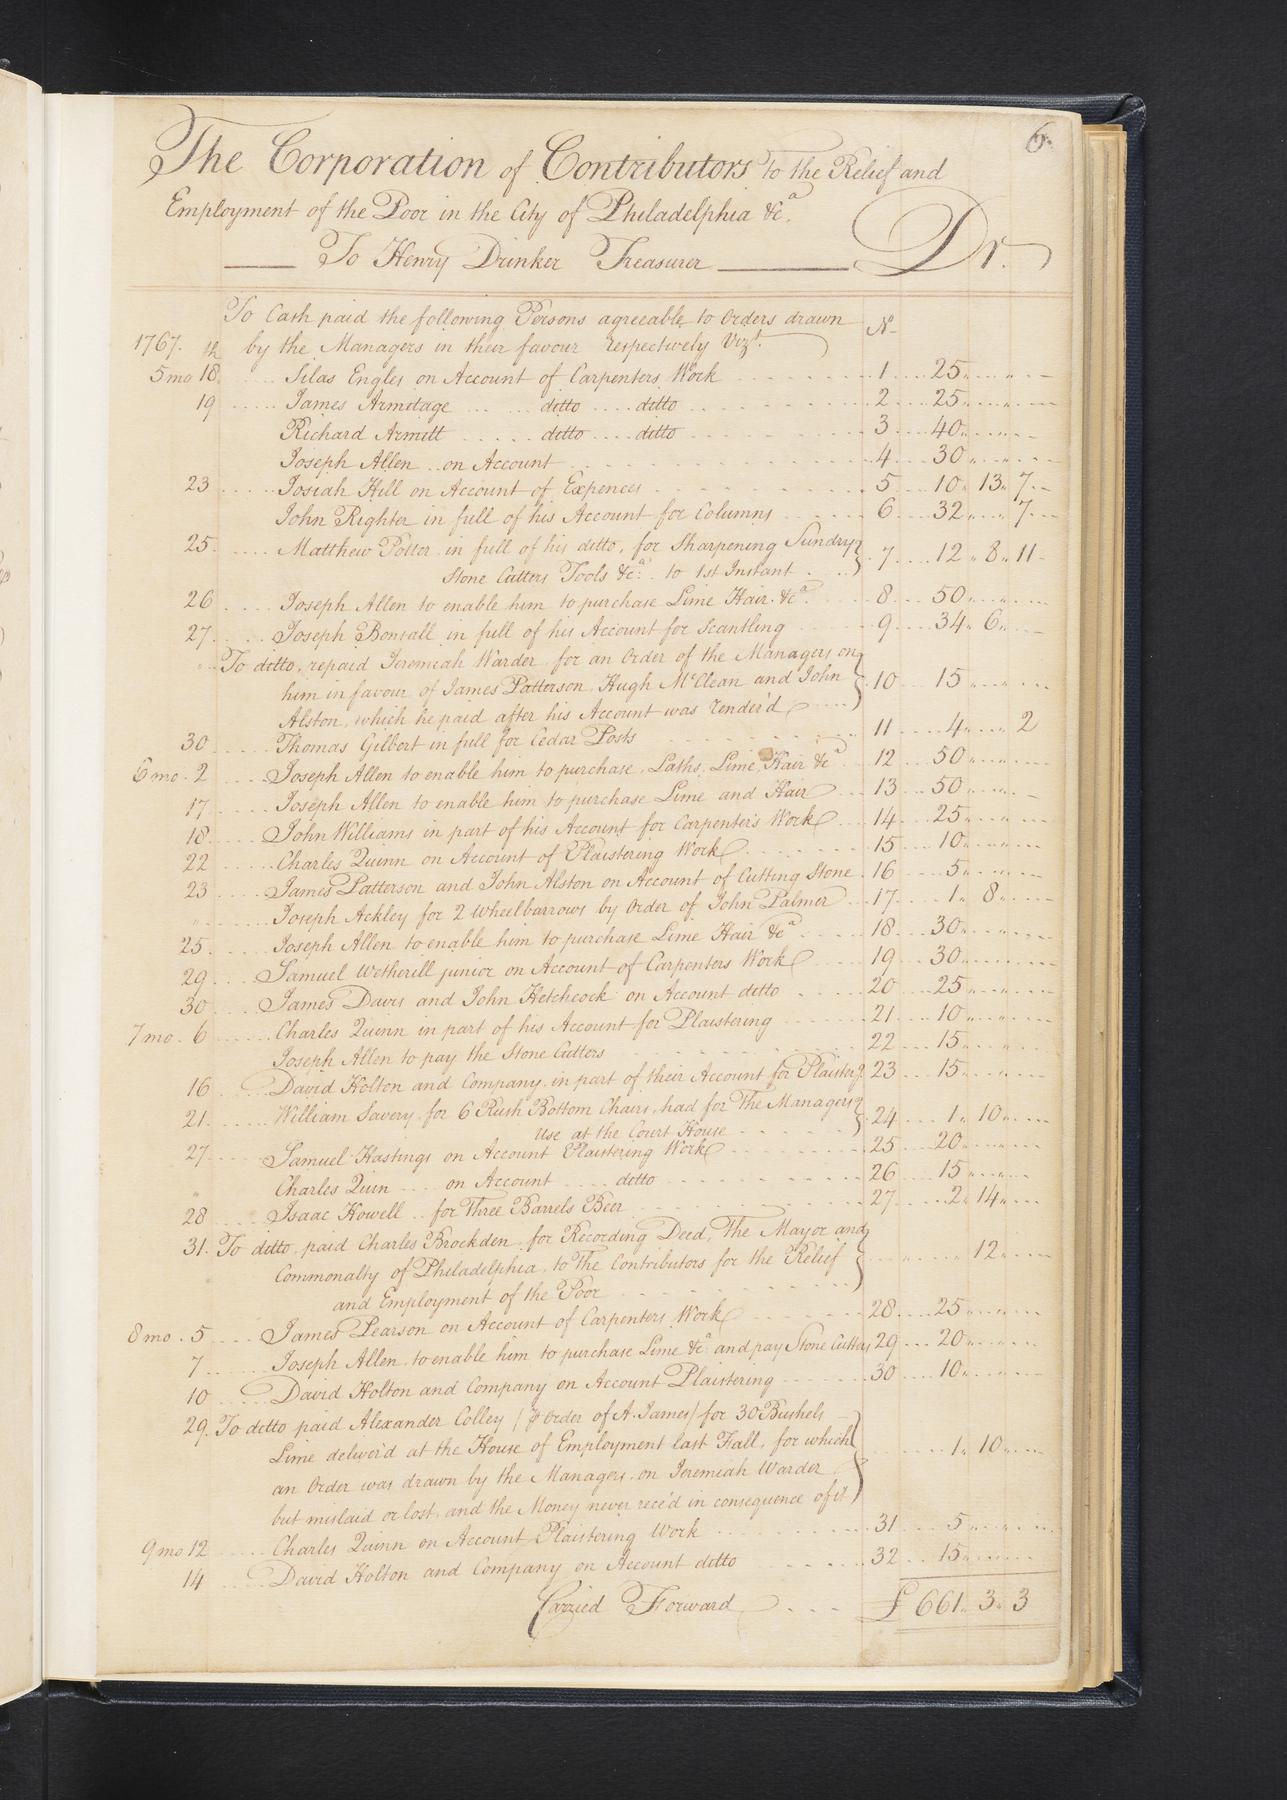 6.
The Corporation of Contributors to the Relief and
Employment of the Poor in the City of Philadelphia &c.a
To Henry Drinker Treasurer Dr.
To Cash paid the following Persons agreeable to Orders drawn No
1767. by the Managers in their favour respectively Vizt.
5 mo 18th Silas Engles on Account of Carpenters Work 1 25
19 James Armitage ditto ditto 2 25
Richard Armitt ditto ditto 3 40
Joseph Allen on Account 4 30
23 Josiah Hill on Account of Expences 5 10 13 7
John Righter in full of his Account for Columns 6 32 7
25 Matthew Potter in full of his ditto, for Sharpening Sundry
Stone Cutters Tools &c.a to 1st Instant 7 12 8 11
26 Joseph Allen to enable him to purchase Lime Hair &c.a 8 50
27 Joseph Bonsall in full of his Account for Scantling 9 34 6
" To ditto, repaid Jeremiah Warder for an Order of the Managers on
him in favour of James Patterson, Hugh McClean and John 10 15
Alston, which he paid after his Account was render'd
30 Thomas Gilbert in full for Cedar Posts 11 4 2
6 mo. 2 Joseph Allen to enable him to purchase Laths, Lime, Hair &c.a 12 50
17 Joseph Allen to enable him to purchase Lime and Hair 13 50
18 John Williams in part of his Account for Carpenter's Work 14 25
22 Charles Quinn on Account of Plaistering Work 15 10
23 James Patterson and John Alston on Account of Cutting Stone 16 5
" Joseph Ackley for 2 Wheelbarrows by Order of John Palmer 17 1 8
25 Joseph Allen to enable him to purchase Lime Hair &c.a 18 30
29 Samuel Wetherill junior on Account of Carpenters Work 19 30
30 James Davis and John Hetchcock on Account ditto 20 25
7 mo. 6 Charles Quinn in part of his Account for Plaistering 21 10
Joseph Allen to pay the Stone Cutters 22 15
16 David Holton and Company in part of their Account for Plaisterg. 23 15
21 William Savery for 6 Rush Bottom Chairs, had for The Managers
Use at the Court House 24 1 10
27 Samuel Hastings on Account Plaistering Work 25 20
" Charles Quin on Account ditto 26 15
28 Isaac Howell for Three Barrels Beer 27 2 14
31. To ditto, paid Charles Brockden, for Recording Deed, The Mayor and
Commonalty of Philadelphia, to The Contributors for the Relief 12
and Employment of the Poor
8 mo. 5 James Pearson on Account of Carpenters Work 28 25
7 Joseph Allen, to enable him to purchase Lime &c.a and pay Stone Cutters 29 20
10 David Holton and Company on Account Plaistering 30 10
29. To ditto paid Alexander Colley (⅌ Order of A. James) for 30 Bushels
Lime deliver'd at the House of Employment last Fall, for which 1 10
an Order was drawn by the Managers, on Jeremiah Warder
but mislaid or lost, and the Money never rece'd in consequence of it
9 mo 12 Charles Quinn on Account Plaistering Work 31 5
14 David Holton and Company on Account ditto 32 15
Carried Forward £ 661 3 3